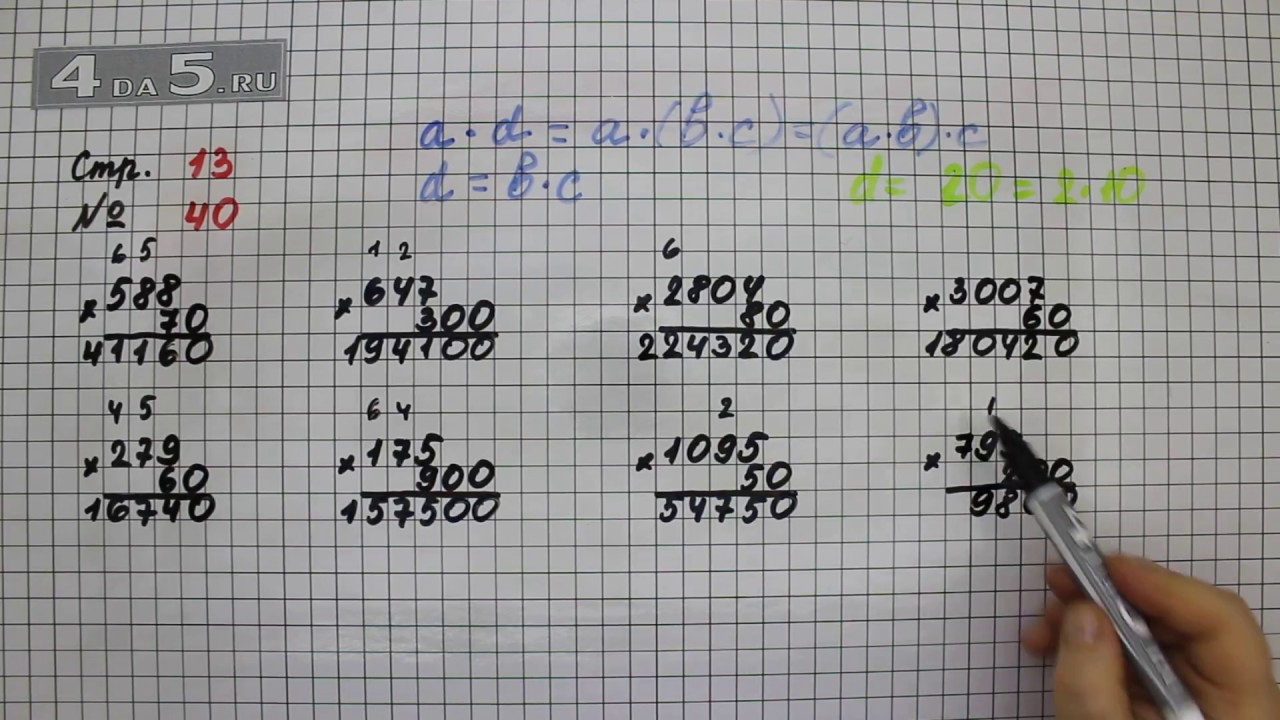 4 DA 5.RU
a · d = a · (b · c) = (a · b) · c
Стр. 13
d = b · c
d = 20 = 2 · 10
№ 40
6 5
× 588
70
41160
1 2
× 647
300
194100
6
× 2804
80
224320
× 3007
60
180420
4 5
× 279
60
16740
6 4
× 175
900
157500
2
× 1095
50
54750
1
×